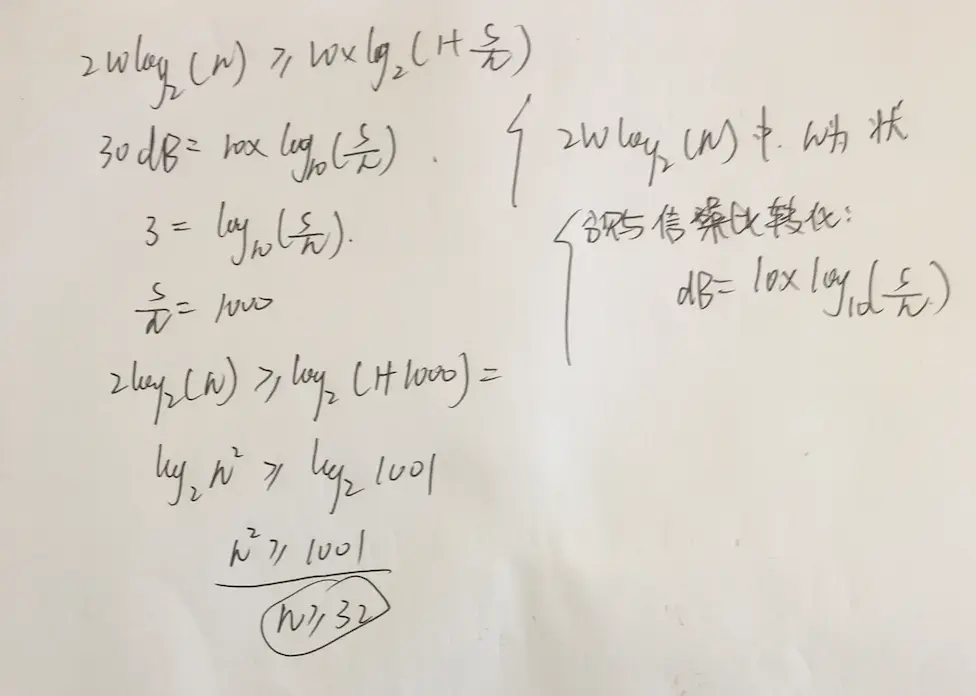 2Wlog₂(N) ≥ W×log₂(1+S/N)
30dB = 10×log₁₀(S/N).
3 = log₁₀(S/N).
S/N = 1000
2log₂(N) ≥ log₂(1+1000) =
log₂N² ≥ log₂1001
N² ≥ 1001
N≥32
2Wlog₂(N)中.N为 状
与信噪比转化:
dB = 10×log₁₀(S/N)